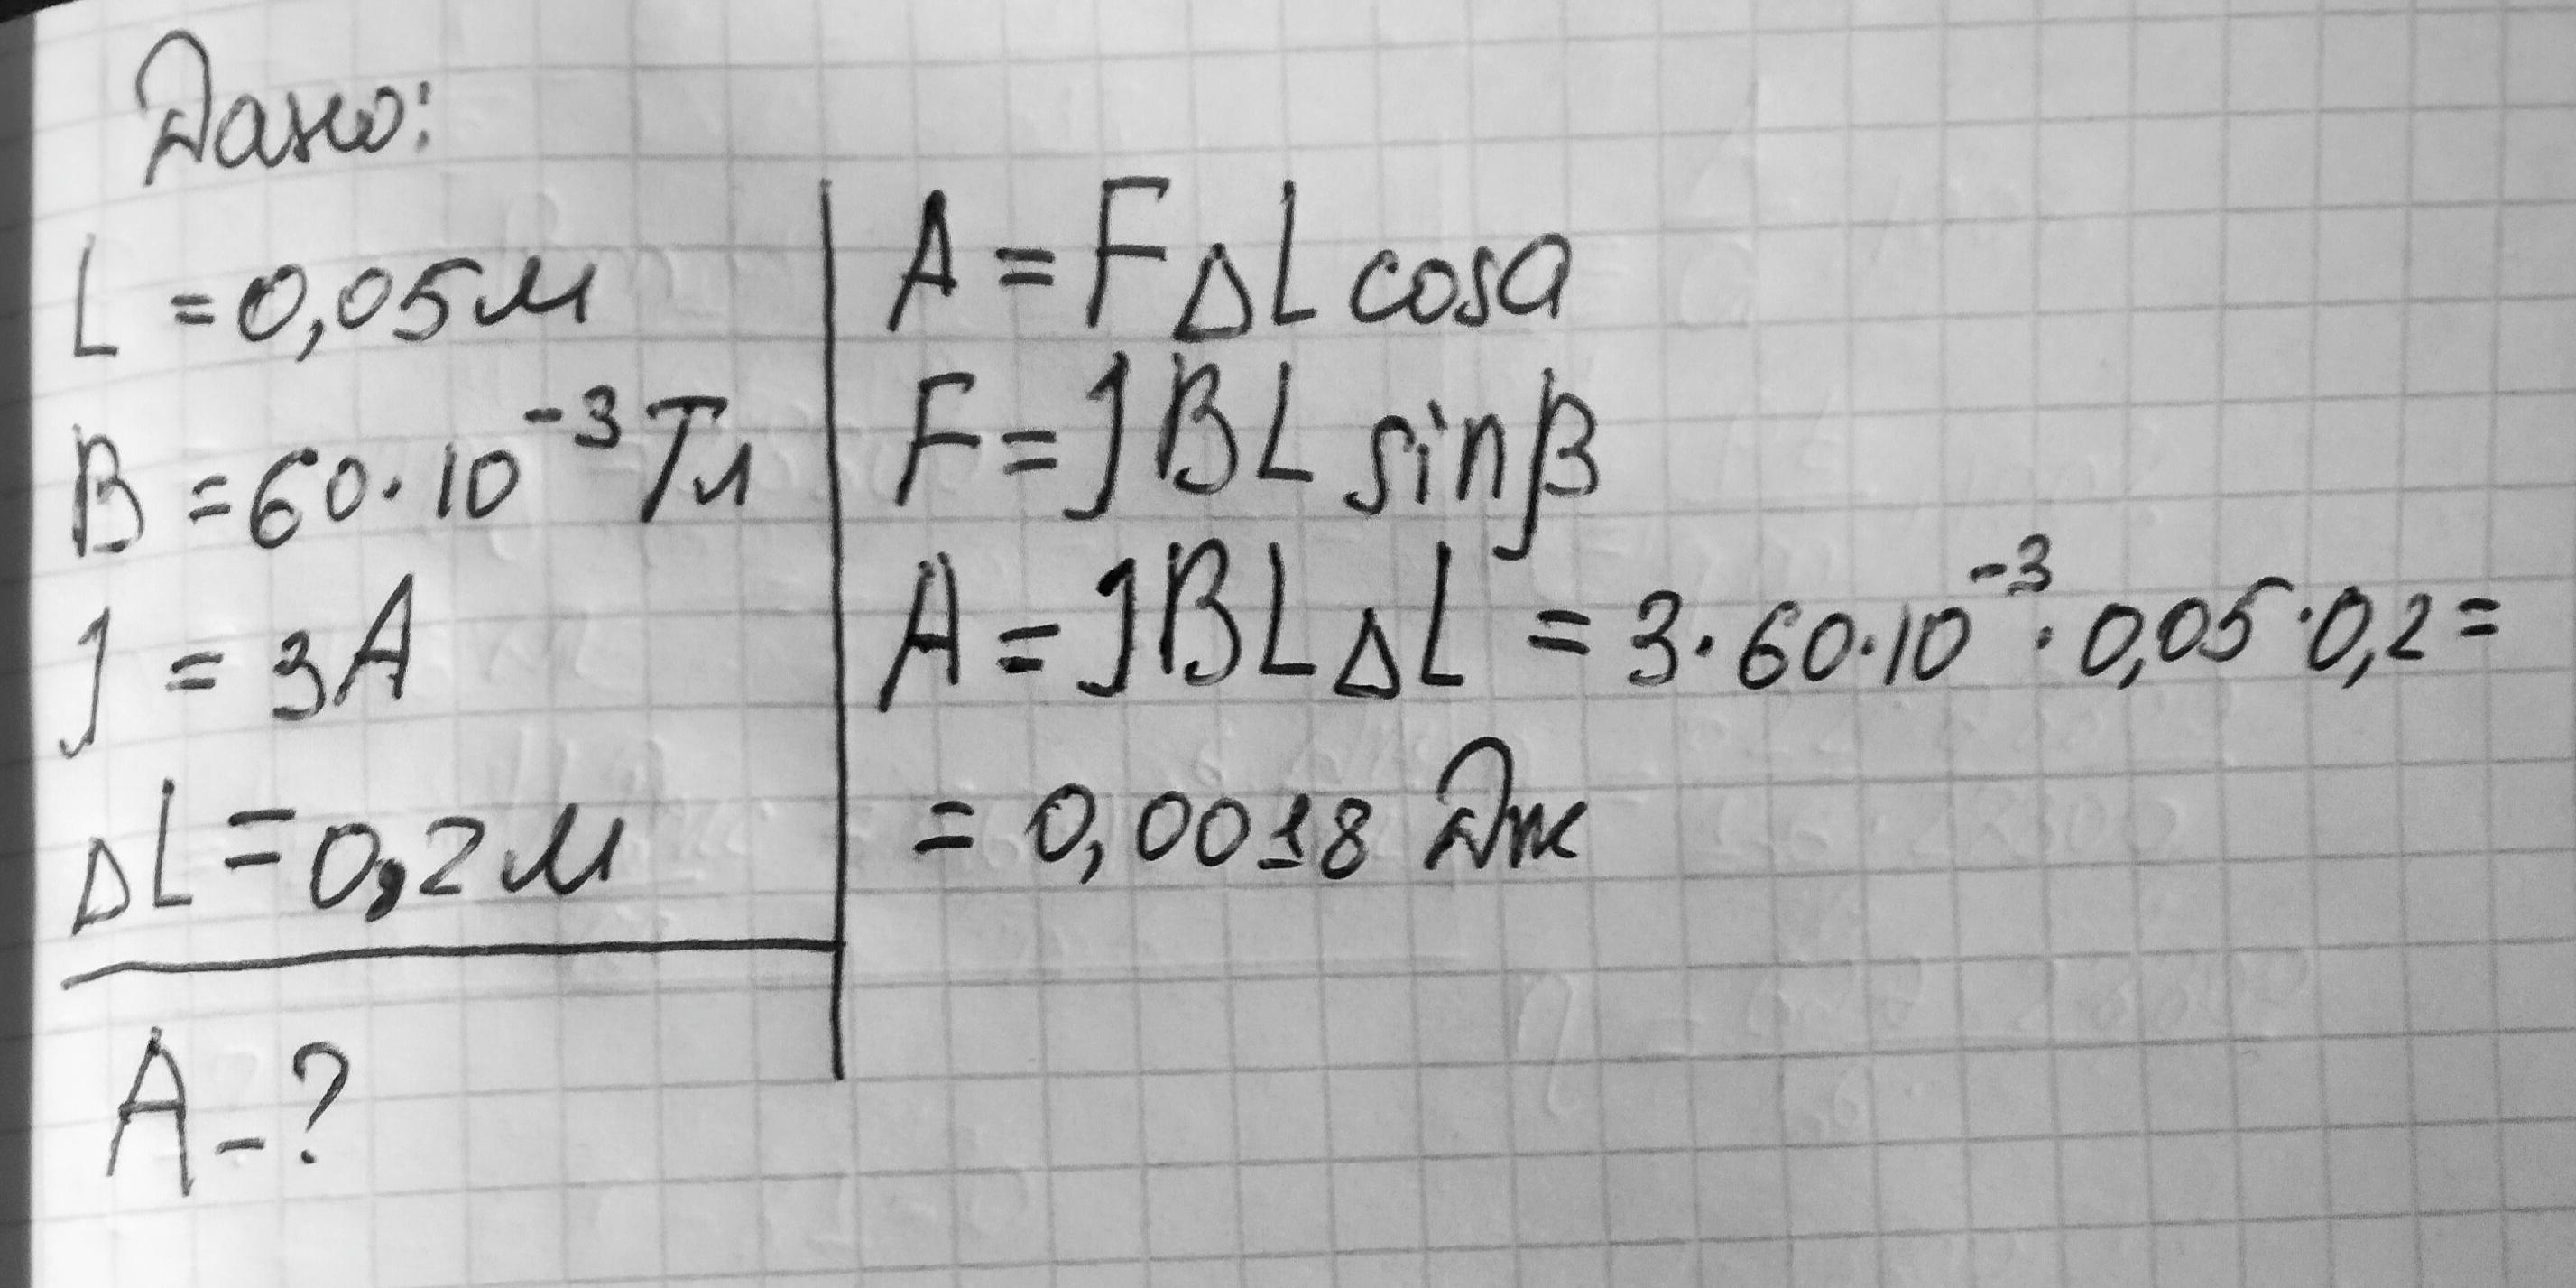 Дано:
L = 0,05 м
B = 60·10⁻³ Тл
J = 3 А
ΔL = 0,2 м
A - ?
A = FΔL cosα
F = JBL sinβ
A = JBLΔL = 3·60·10⁻³·0,05·0,2 =
= 0,0018 Дж